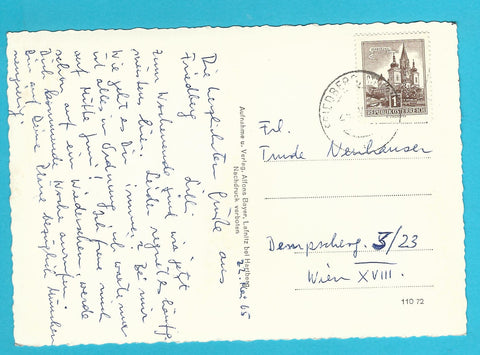 Die herzlichsten Grüße aus
Friedberg Lilli
22. Mai 65
Zum Wochenende sind wir jetzt
meistens hier. Leider regnet es häufig
Wie geht es Dir immer? Bei mir
ist alles in Ordnung, ich warte nur
auf Mitte Juni! Ich freue mich
schon auf ein Wiedersehen, werde
Dich kommende Woche anrufen.
Bin auf Deine Pläne bezüglich München
neugierig!
Aufnahme u. Verlag: Alfons Bayer, Lafnitz bei Hartberg
Nachdruck verboten
FRIEDBERG
REPUBLIK ÖSTERREICH
Frl.
Trude Neuhauser
Dempscherg. 3/23
Wien XVIII.
110 72